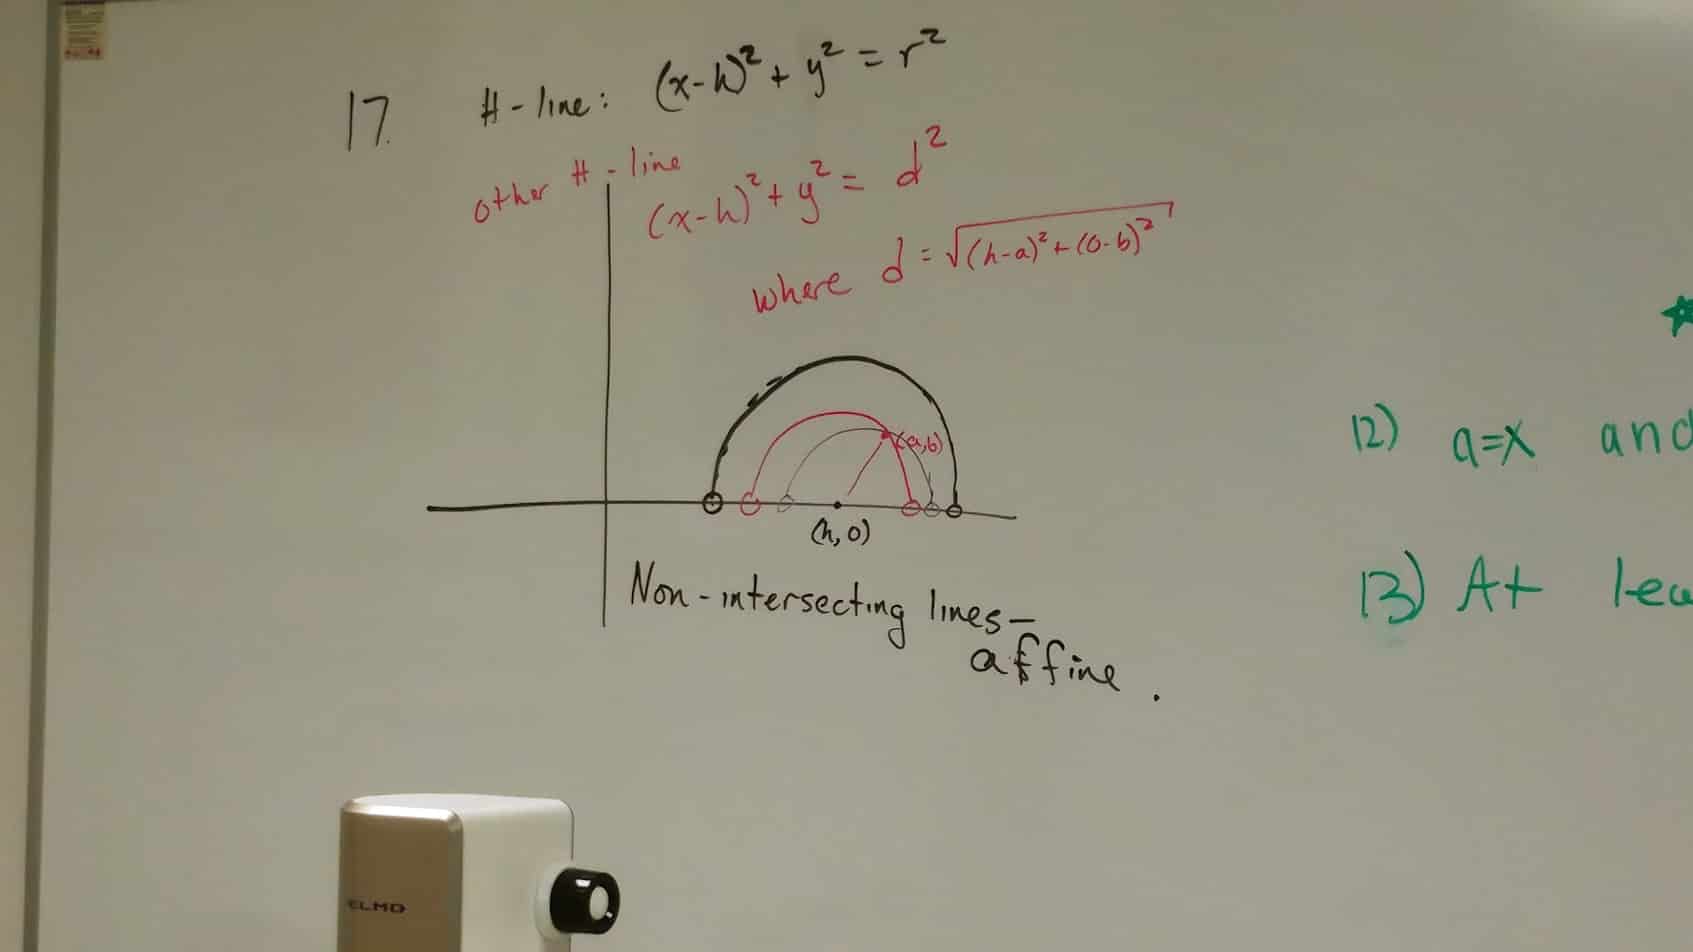 17. H-line: (x-h)² + y² = r²
other H-line
(x-h)² + y² = d²
where d = √(h-a)² + (0-b)²
(a,b)
(h,0)
Non-intersecting lines-
affine.
12) a=x and
13) At lea
ELMO